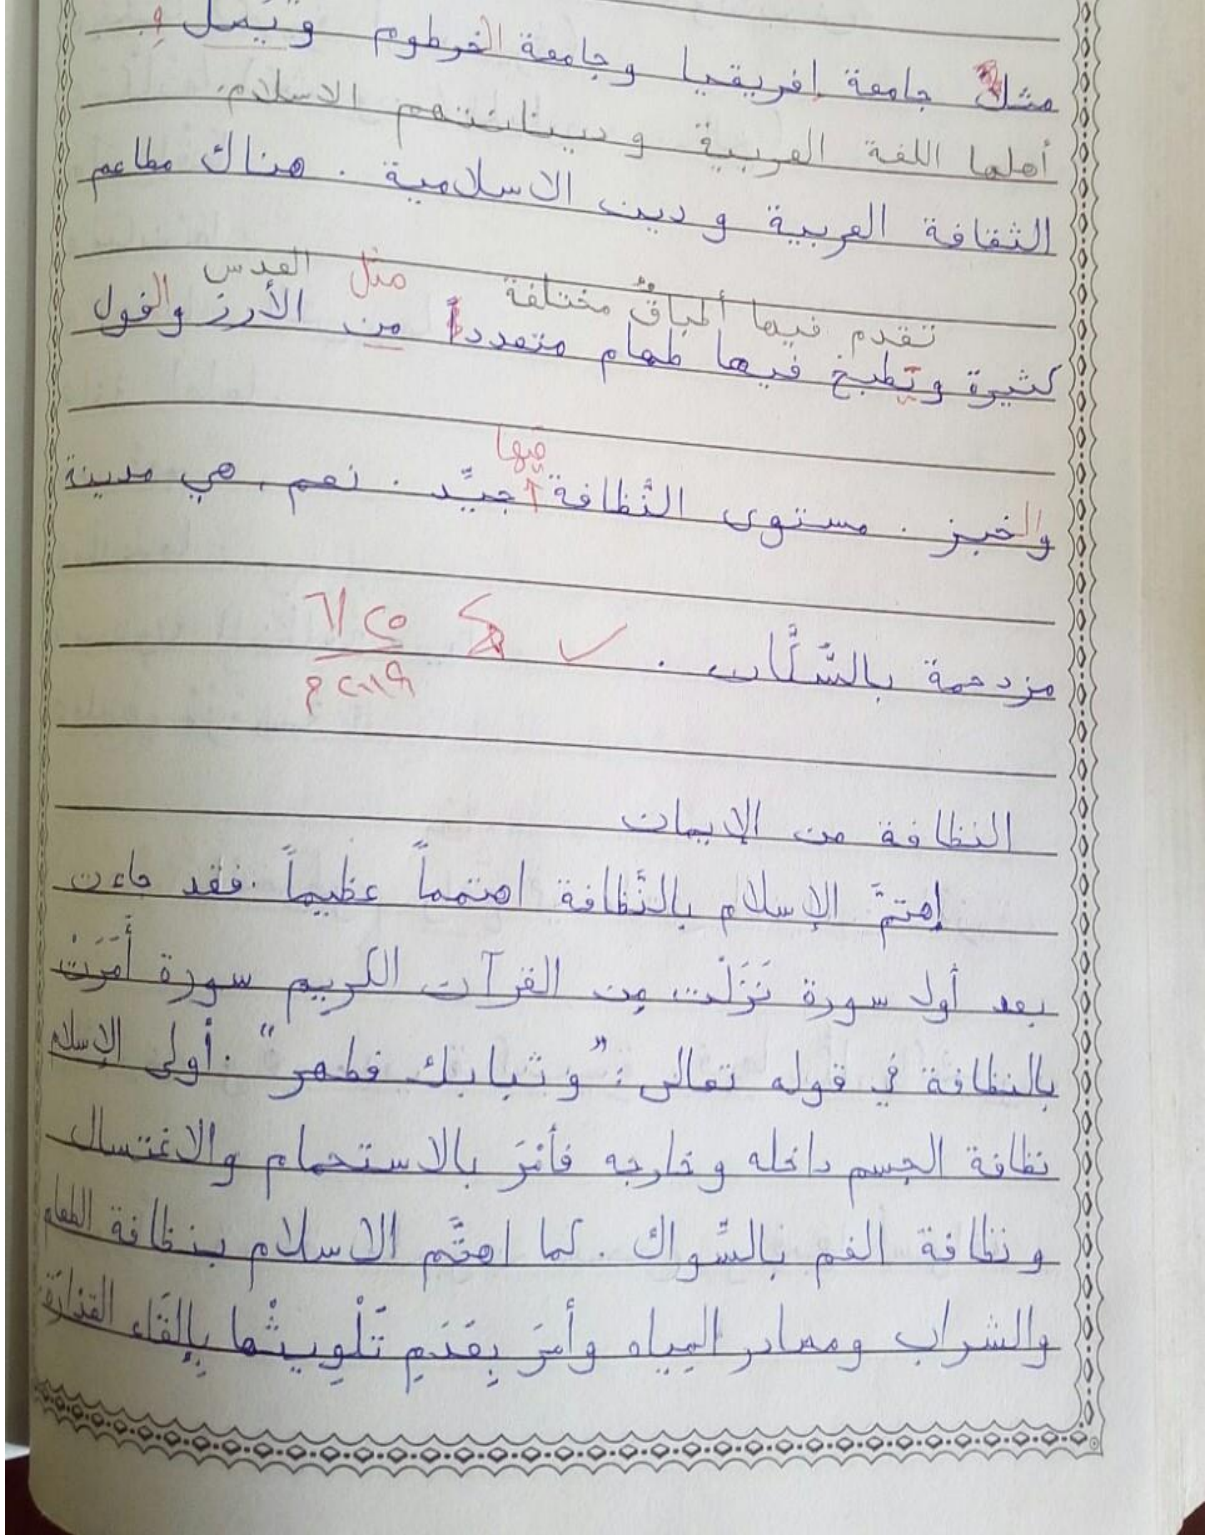 مثل جامعة إفريقيا وجامعة الخرطوم
أهلها اللغة العربية وديانتهم الاسلام.
الثقافة العربية و دين الاسلامية . هناك مطاعم
تقدم فيها أطباقٌ مختلفة مثل العدس
كثيرة وتطبخ فيها طعام متعدداً من الأرز والفول
فيها
والخبز . مستوى النَّظافة جيِّد . نعم ، هي مدينة
مزدحمة بالسُّكَّان .
النظافة من الإيمان
إهتمَّ الإسلام بالنَّظافة اهتمماً عظيماً . فقد جاءت
بعد أول سورة نَزَلْت مِن القرآن الكريم سورة أَمَرَتْ
بالنظافة في قوله تعالى : " وَثيابك فطهر " . أولى الإسلام
نظافة الجسم داخله وخارجه فأمَرَ بالاستحمام والاغتسال
و نظافة الفم بالسِّواك . كما اهتَّم الاسلام بنظافة الطعام
والشراب ومصادر المِياه وأمَرَ بِعَدَمِ تَلْوِيثْها بِإلقَاء القذارَة